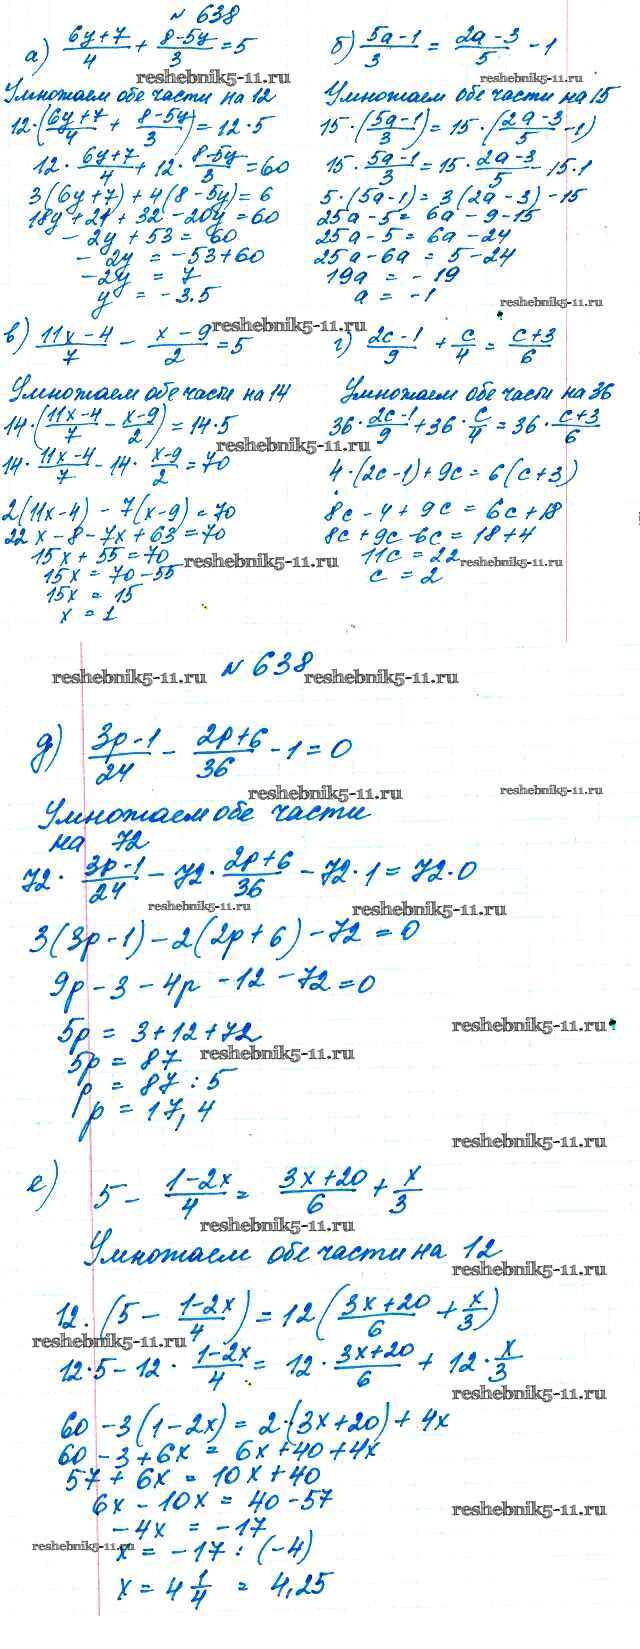 № 638
а) (6y+7)/4 + (8-5y)/3 = 5
reshebnik5-11.ru
Умножаем обе части на 12
12·((6y+7)/4 + (8-5y)/3) = 12·5
12·(6y+7)/4 + 12·(8-5y)/3 = 60
3(6y+7)+4(8-5y)=6
18y+21+32-20y=60
-2y+53=60
-2y = -53+60
-2y = 7
y = -3.5
б) (5a-1)/3 = (2a-3)/5 - 1
reshebnik5-11.ru
Умножаем обе части на 15
15·((5a-1)/3) = 15·((2a-3)/5 - 1)
15·(5a-1)/3 = 15·(2a-3)/5 - 15·1
5·(5a-1) = 3(2a-3)-15
25a-5 = 6a-9-15
25a-5 = 6a-24
25a-6a = 5-24
19a = -19
a = -1
reshebnik5-11.ru
в) (11x-4)/7 - (x-9)/2 = 5
reshebnik5-11.ru
Умножаем обе части на 14
14·((11x-4)/7 - (x-9)/2) = 14·5
reshebnik5-11.ru
14·(11x-4)/7 - 14·(x-9)/2 = 70
2(11x-4) - 7(x-9) = 70
22x-8-7x+63=70
15x+55=70
reshebnik5-11.ru
15x = 70-55
15x = 15
x = 1
г) (2c-1)/9 + c/4 = (c+3)/6
Умножаем обе части на 36
36·(2c-1)/9 + 36·c/4 = 36·(c+3)/6
4·(2c-1)+9c = 6(c+3)
8c-4+9c = 6c+18
8c+9c-6c = 18+4
11c = 22
reshebnik5-11.ru
c = 2
№ 638
reshebnik5-11.ru
reshebnik5-11.ru
д) (3p-1)/24 - (2p+6)/36 - 1 = 0
reshebnik5-11.ru
reshebnik5-11.ru
Умножаем обе части
на 72
72·(3p-1)/24 - 72·(2p+6)/36 - 72·1 = 72·0
reshebnik5-11.ru
reshebnik5-11.ru
3(3p-1)-2(2p+6)-72=0
9p-3-4p-12-72=0
5p = 3+12+72
reshebnik5-11.ru
5p = 87
reshebnik5-11.ru
p = 87 : 5
p = 17,4
reshebnik5-11.ru
е) 5 - (1-2x)/4 = (3x+20)/6 + x/3
reshebnik5-11.ru
Умножаем обе части на 12
reshebnik5-11.ru
12·(5 - (1-2x)/4) = 12((3x+20)/6 + x/3)
reshebnik5-11.ru
12·5-12·(1-2x)/4 = 12·(3x+20)/6 + 12·x/3
reshebnik5-11.ru
60-3(1-2x) = 2·(3x+20)+4x
60-3+6x = 6x+40+4x
57+6x = 10x+40
6x-10x = 40-57
reshebnik5-11.ru
-4x = -17
reshebnik5-11.ru
x = -17 : (-4)
x = 4 1/4 = 4,25